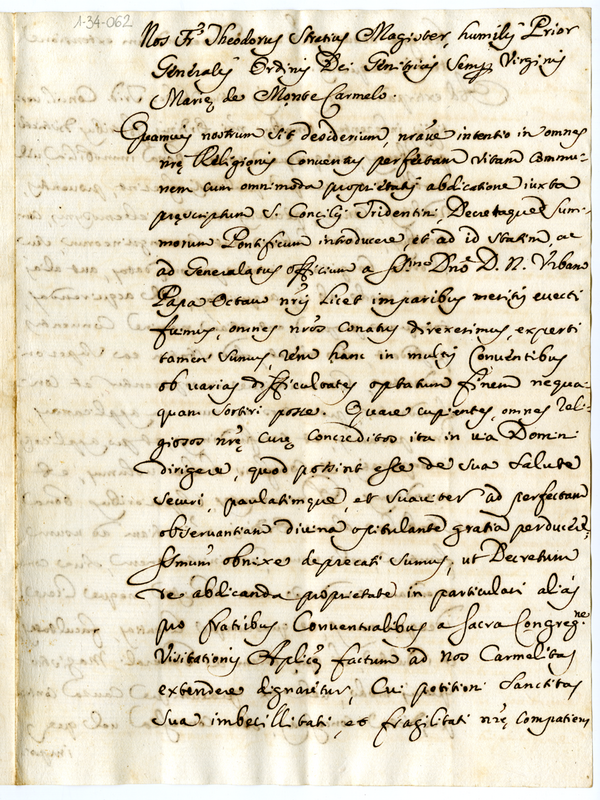 1-34-062
Nos Fr. Theodorus Stratius Magister, humilis Prior
Generalis Ordinis Dei Genitricis Semp. Virginis
Marię de Monte Carmelo.
Quamuis nostrum sit desiderium, nraue intentio in omnes
nrę Religionis Conventus perfectam vitam commu-
nem cum omnimoda proprietatis abdicatione iuxta
pręscriptum S. Concilij Tridentini, Decretaque Sum-
morum Pontificum introducere, et ad id statim, ac
ad Generalatus officium a SS.mo Dno D. N. Urbano
Papa Octauo nris licet imparibus meritis euecti
fuimus, omnes nros conatus direxerimus, experti
tamen sumus, rem hanc in multis Conventibus
ob uarias difficultates optatum finem nequa-
quam sortiri posse. Quare cupientes, omnes reli-
giosos nrę curę concreditos ita in uia Domini
dirigere, quod possint esse de sua salute
securi, paulatimque, et suauiter ad perfectam
obseruantiam diuina opitulante gratia perducere,
SSmum obnixe deprecati sumus, ut Decretum
de abdicanda proprietate in particulari alias
pro fratribus Conventualibus a Sacra Congreg.ne
Visitationis Aplicę factum ad nos Carmelitas
extendere dignaretur, Cui petitioni Sanctitas
sua imbecillitati, et fragilitati nrę compatiens